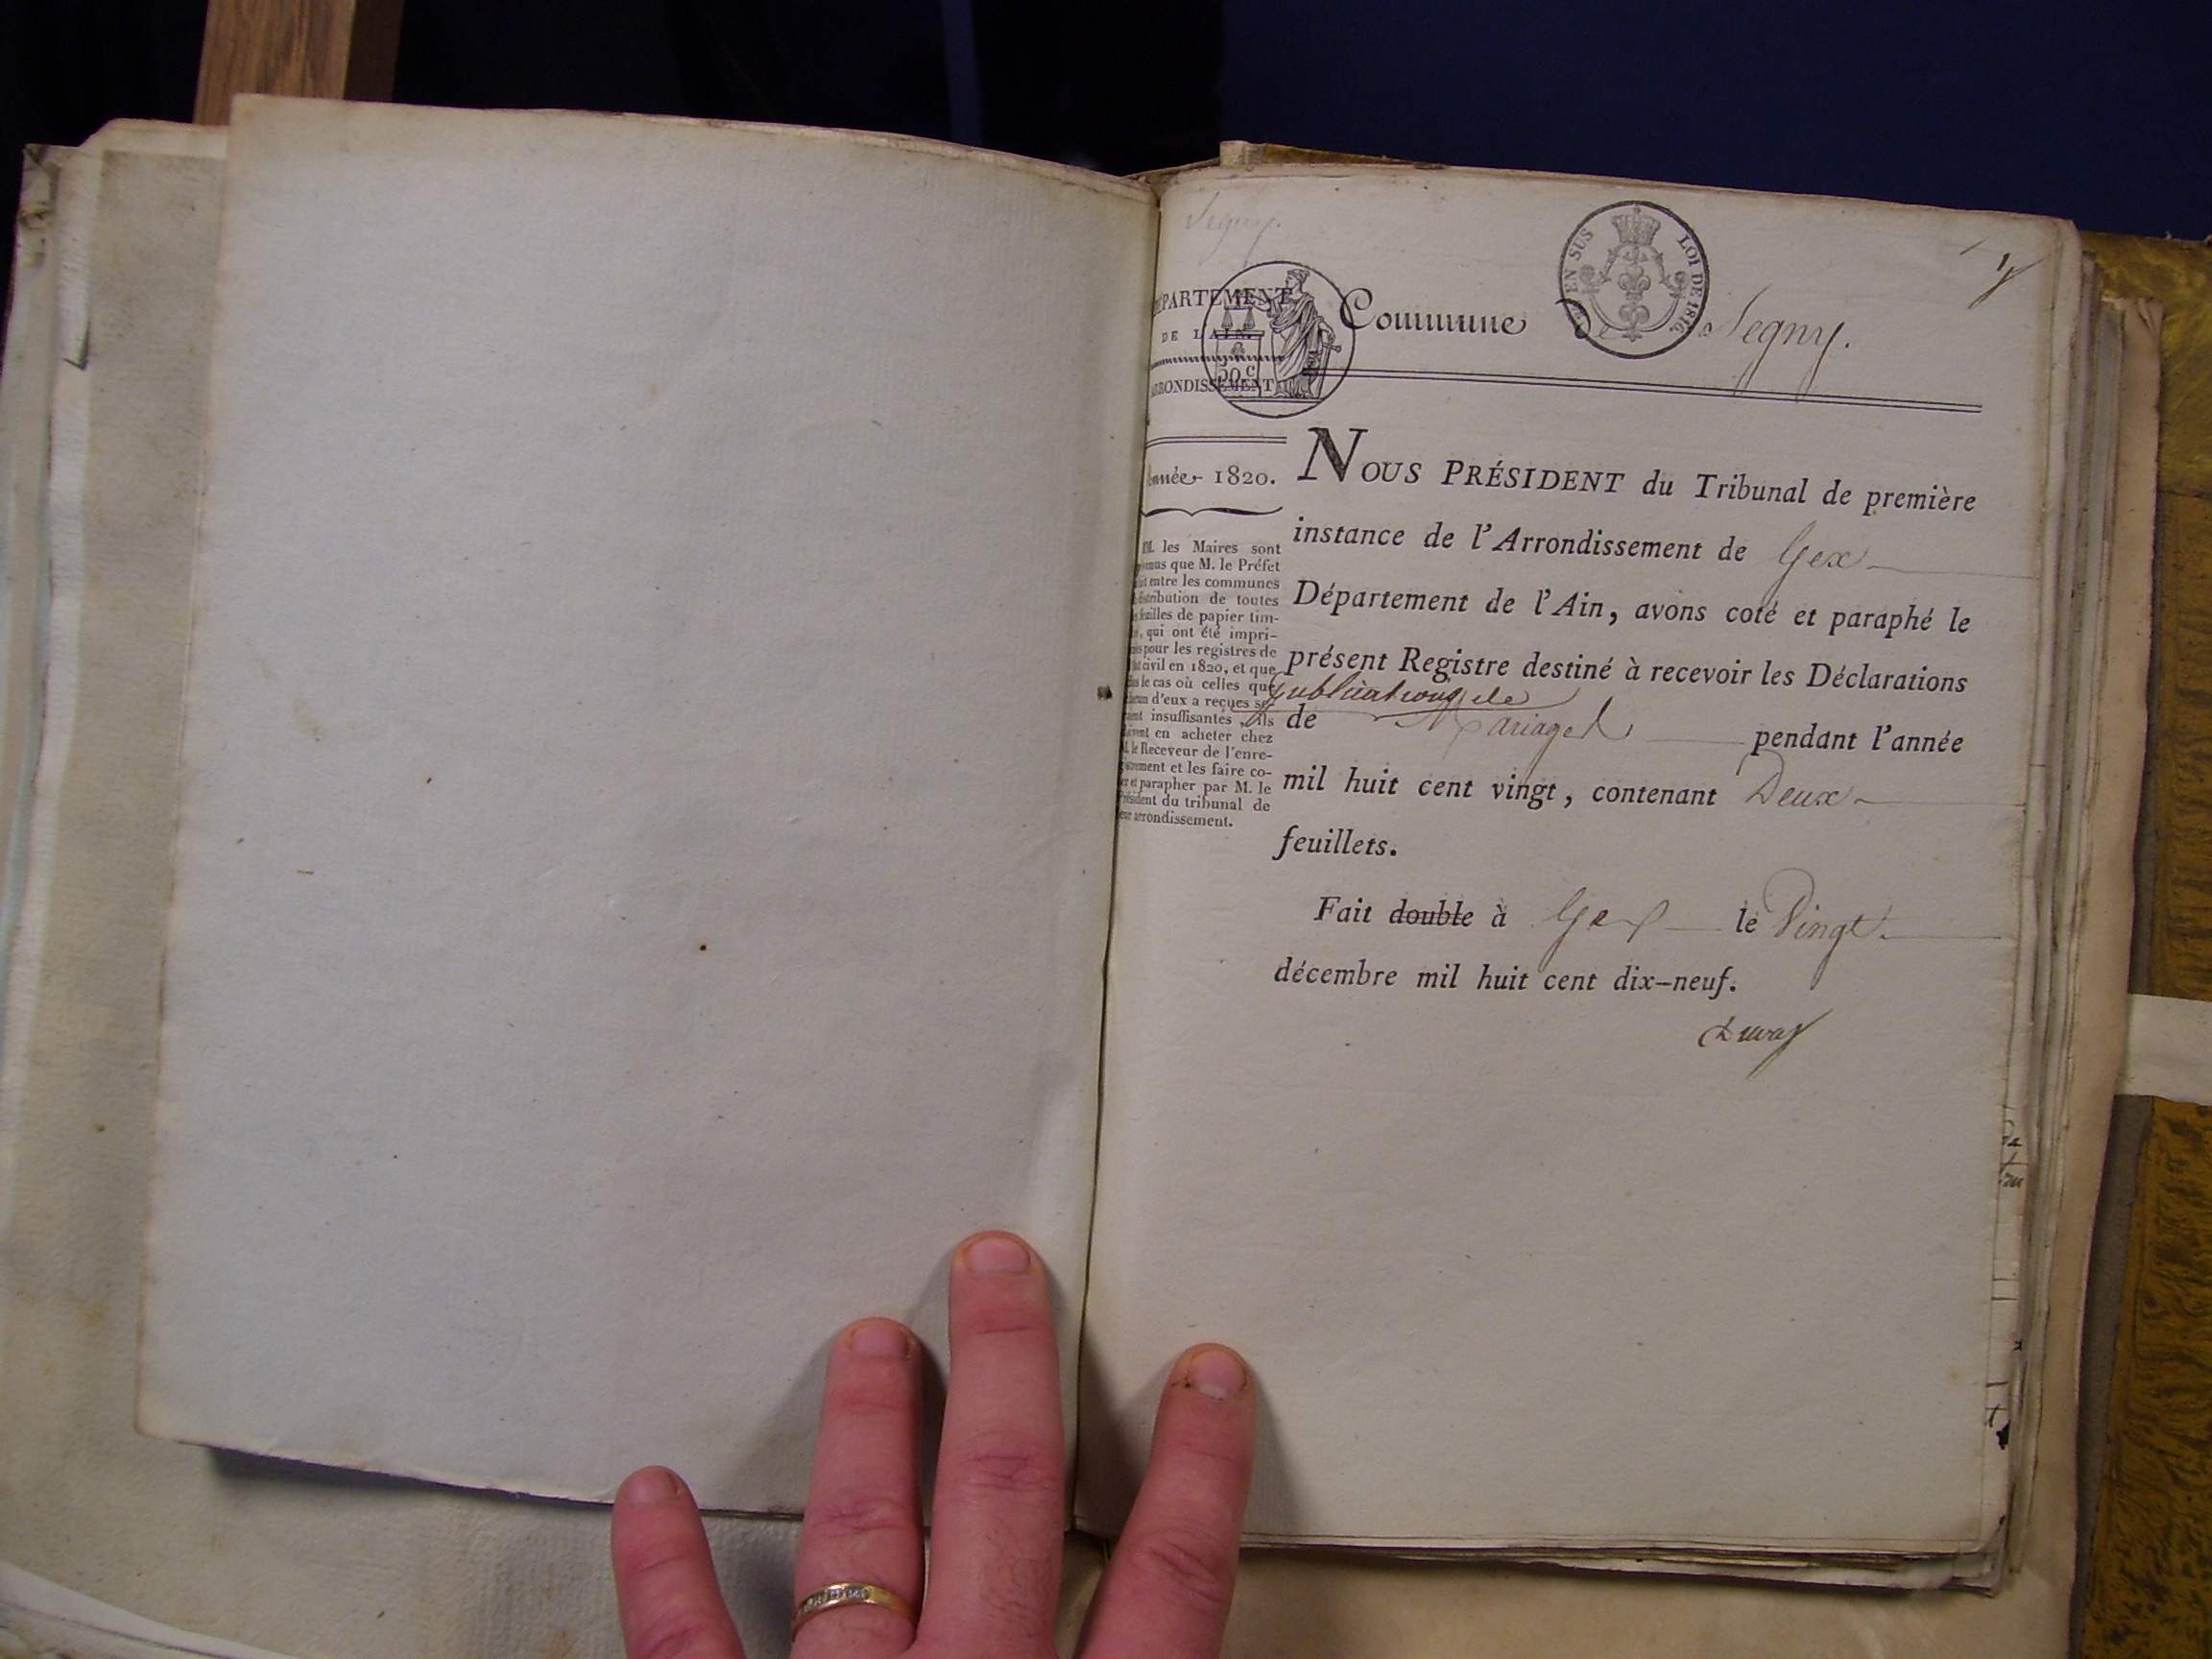 Segny.
EN SUS LOI DE 1816.
1
DÉPARTEMENT
DE L'AIN.
50 c
ARRONDISSEMENT
Commune de Segny.
Année 1820.
MM. les Maires sont
prévenus que M. le Préfet
fait entre les communes
distribution de toutes
feuilles de papier tim-
qui ont été impri-
més pour les registres de
l'état civil en 1820, et que
dans le cas où celles que
chacun d'eux a reçues se-
raient insuffisantes, ils
doivent en acheter chez
M. le Receveur de l'enre-
gistrement et les faire co-
ter et parapher par M. le
Président du tribunal de
leur arrondissement.
NOUS PRÉSIDENT du Tribunal de première
instance de l'Arrondissement de Gex
Département de l'Ain, avons coté et paraphé le
présent Registre destiné à recevoir les Déclarations
publications de
de Mariages pendant l'année
mil huit cent vingt, contenant Deux
feuillets.
Fait double à Gex le Vingt
décembre mil huit cent dix-neuf.